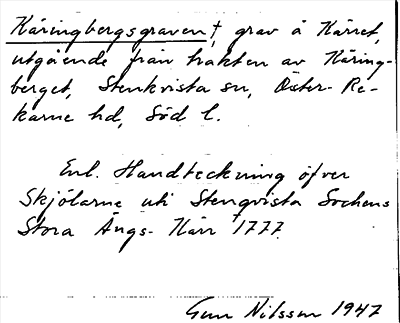 Käringbergsgraven†, grav å Kärret,
utgående från trakten av Käring-
berget, Stenkvista sn, Öster-Re-
karne hd, Söd l.
Enl. Handteckning öfver
Skjölarne uti Stenqvista Sochens
Stora Ängs-Kärr 1777.
Gun Nilsson 1947